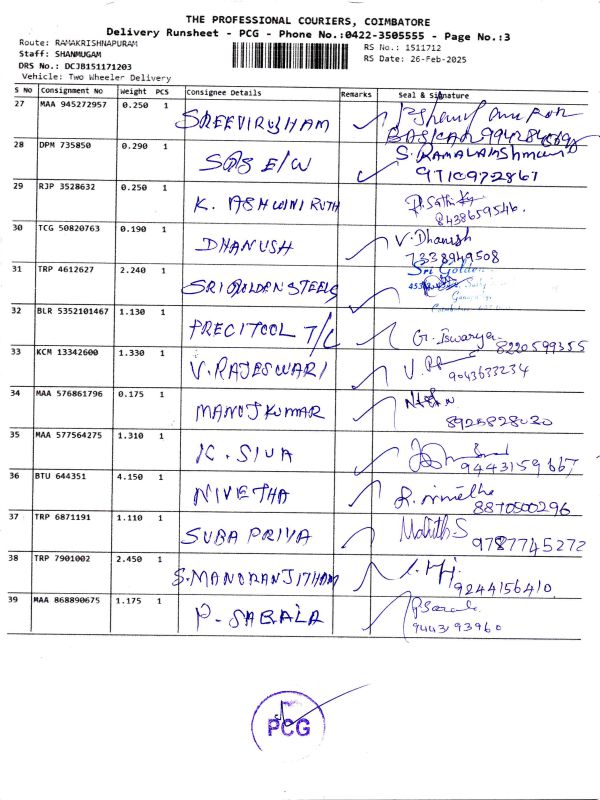 THE PROFESSIONAL COURIERS, COIMBATORE
Delivery Runsheet - PCG - Phone No.:0422-3505555 - Page No.:3
Route: RAMAKRISHNAPURAM
Staff: SHANMUGAM
DRS No.: DCJB151171203
Vehicle: Two Wheeler Delivery
RS No.: 1511712
RS Date: 26-Feb-2025
S No Consignment No Weight PCS Consignee Details Remarks Seal & Signature
27 MAA 945272957 0.250 1 SREEVIRUSHAM
28 DPM 735850 0.290 1 E/W S. RAMALAKSHMI
9710972867
29 RJP 3528632 0.250 1 K. ASHWINI RUTH
8438659546.
30 TCG 50820763 0.190 1 DHANUSH V. Dhanush
7338949508
31 TRP 4612627 2.240 1 SRI GOLDEN STEELS Sri Golden
32 BLR 5352101467 1.130 1 PRECITOOL T/C G. Iswarya
8220599355
33 KCM 13342600 1.330 1 V. RAJESWARI
9043633234
34 MAA 576861796 0.175 1 MANOJKUMAR
8925828030
35 MAA 577564275 1.310 1 K. SIVA
9443159667
36 BTU 644351 4.150 1 NIVETHA
8870500296
37 TRP 6871191 1.110 1 SUBA PRIYA
9787745272
38 TRP 7901002 2.450 1 S. MANORANJITHAM
9244156410
39 MAA 868890675 1.175 1 P. SABALA
9443193960
PCG